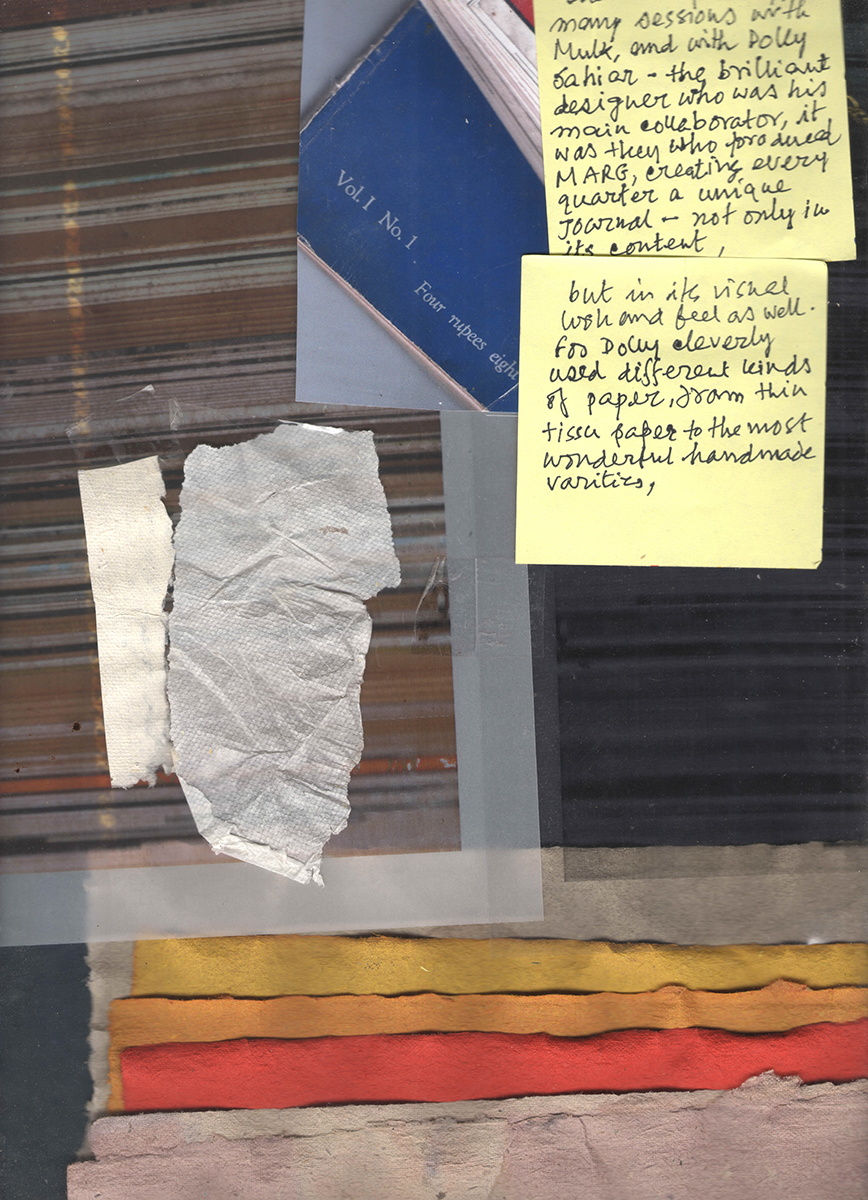 many sessions with
Mulk, and with Dolly
Sahiar - the brilliant
designer who was his
main collaborator, it
was they who produced
MARG, creating every
quarter a unique
Journal - not only in
its content,
but in its visual
look and feel as well.
For Dolly cleverly
used different kinds
of paper, from thin
tissu paper to the most
wonderful handmade
varities,
Vol. I No. 1.
Four rupees eight